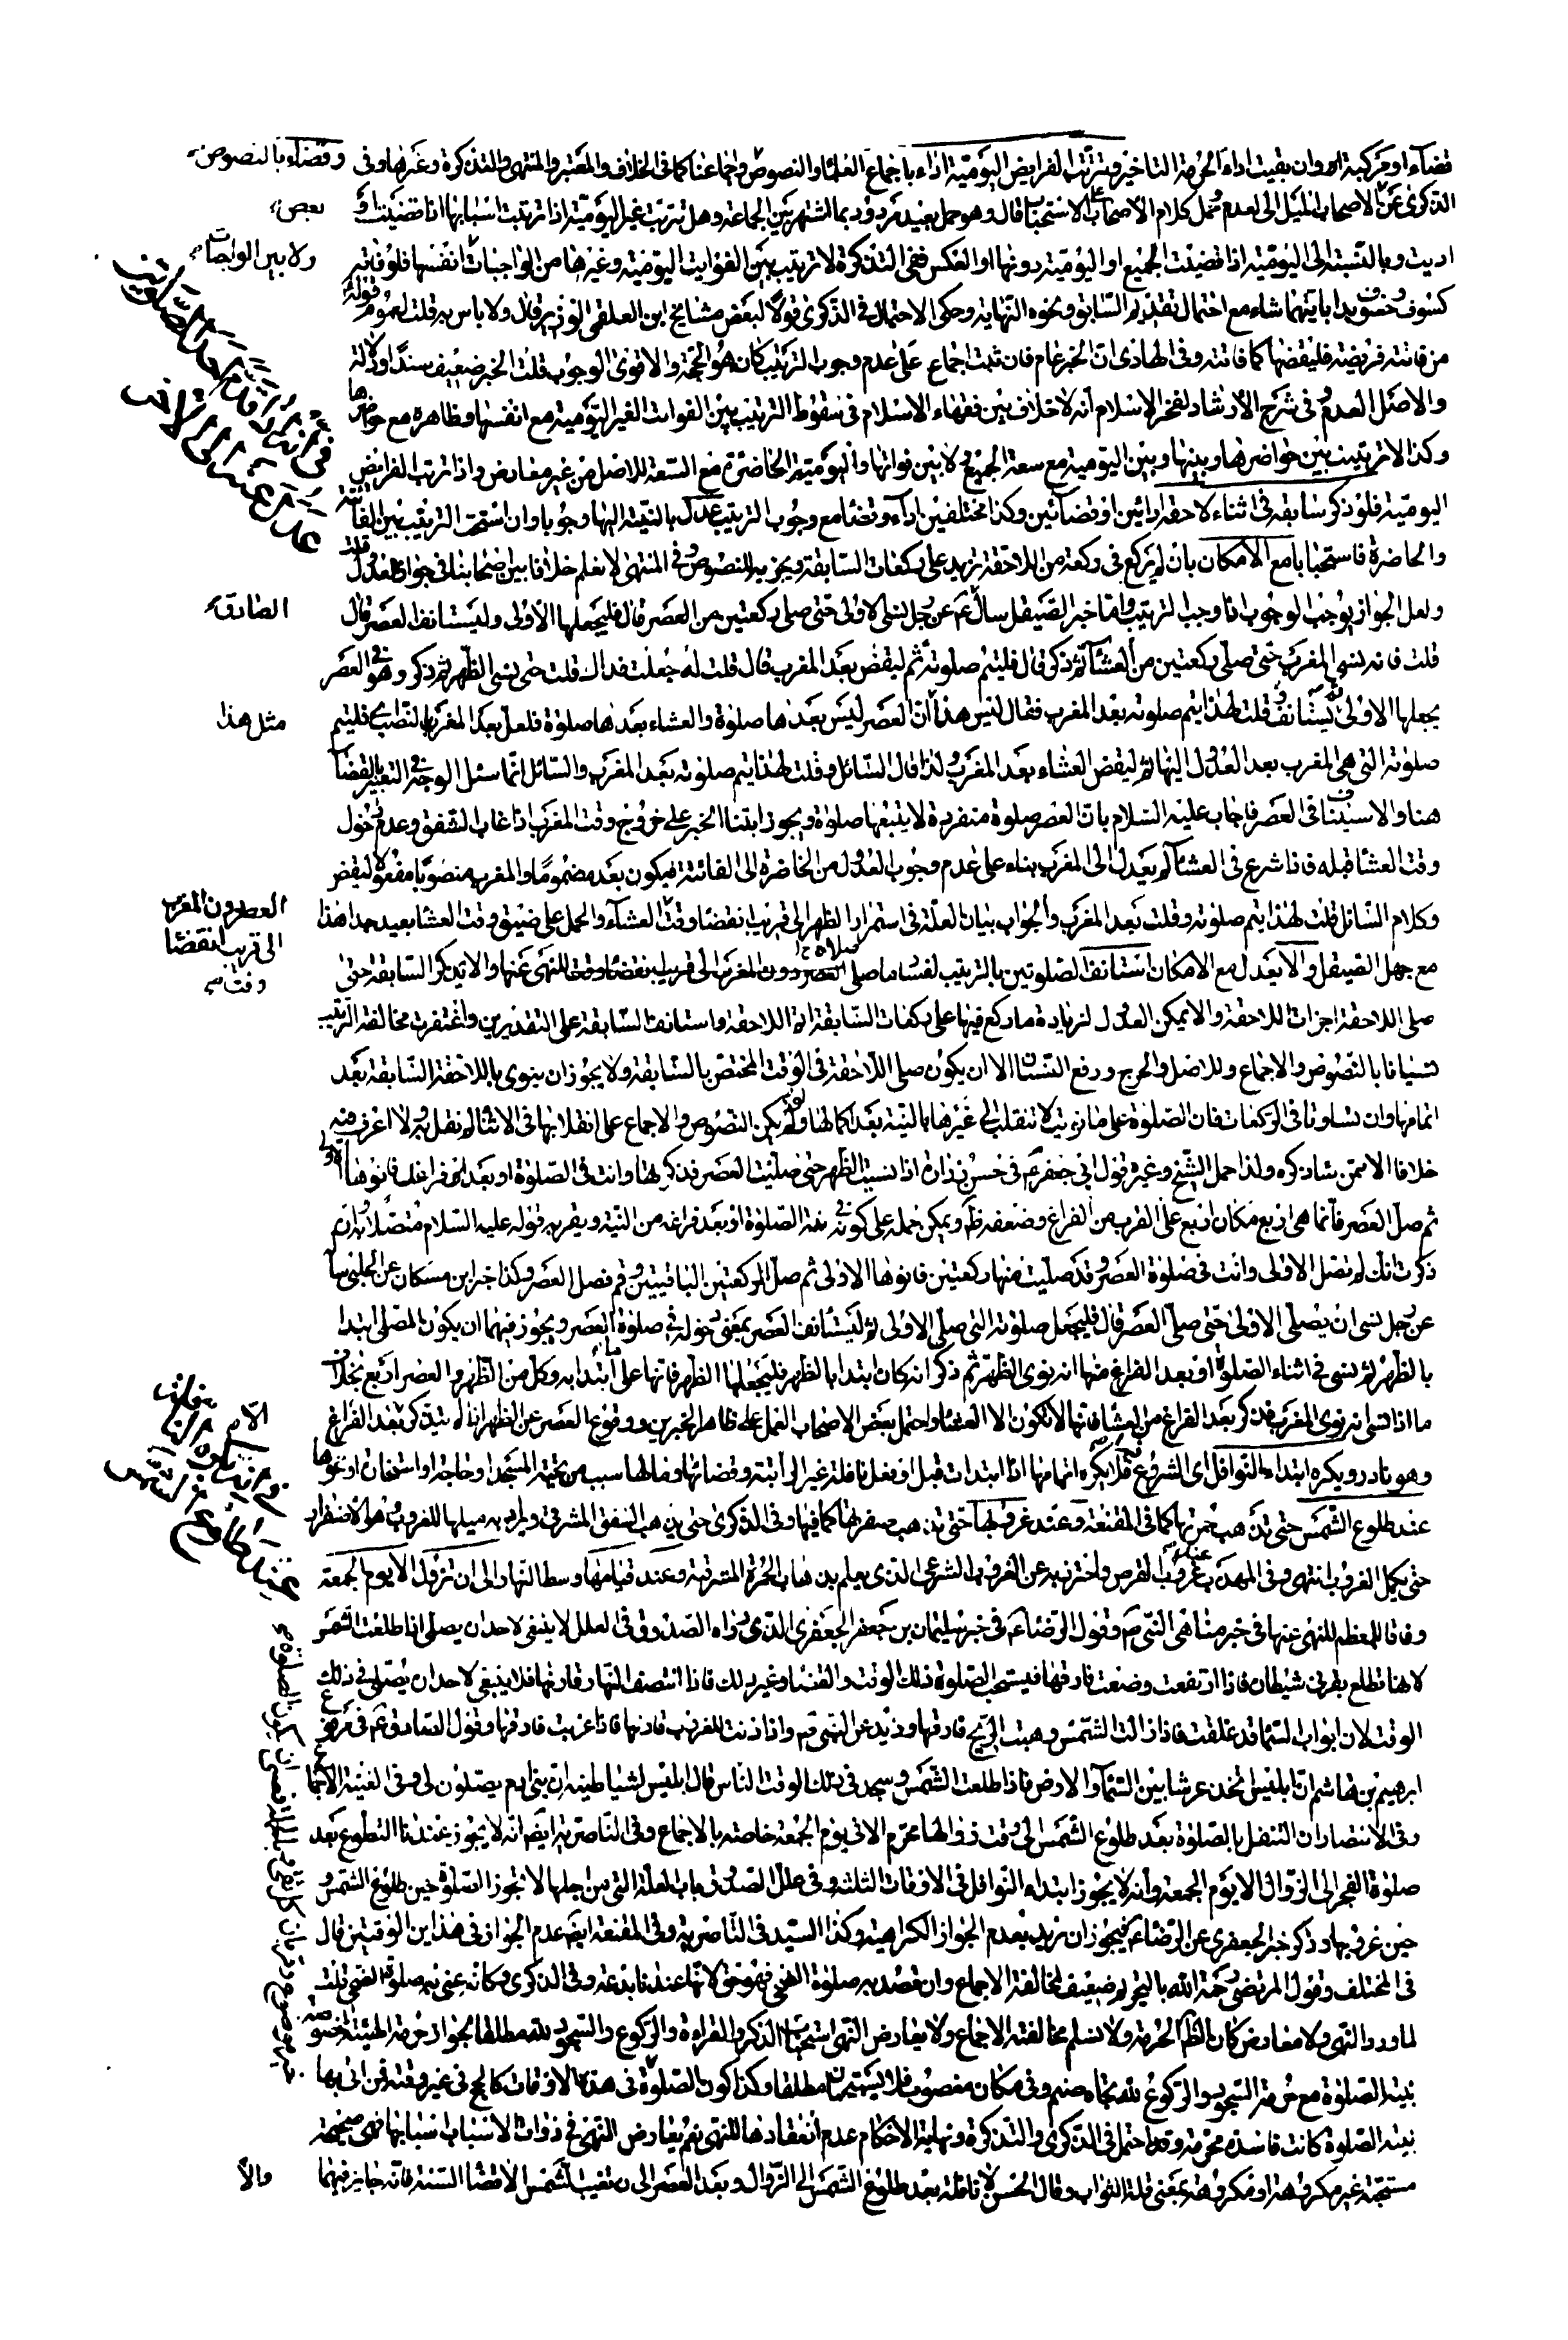 قضاء او مركبة اه وان بقيت اداء لحرمة التاخير وتترتب الفرايض اليومية اداء باجماع العلماء والنصوص واجماعنا كما فى الخلاف والمعتبر والمنتهى والتذكرة وغيرها وفى
وقضاء بالنصوص
الذكرى عن الاصحاب الميل الى لعدم حمل كلام الاصحاب على الاستحباب قال وهو حمل بعيد مردود بما اشتهر بين الجماعة وهل تترتب غير اليومية اذا ترتبت اسبابها اذا قضيت او
بعض
اديت وبالنسبة الى اليومية اذا قضيت الجميع او اليومية دونها او العكس ففى التذكرة لا ترتيب بين الفوايت اليومية وغيرها من الواجبات انفسها فلو فاته
ولا بين الواجبات
كسوف وخسوف بدا بايتهما شاء مع احتمال تقديم السابق ونحوه النهاية وحكى الاحتمال فى الذكرى قولا لبعض مشايخ ابن العلقمى الوزير قال ولا باس به قلت لعموم قوله
من فاتته فريضة فليقضها كما فاتته وفى الهادى ان الخبر عام فان ثبت اجماع على عدم وجوب الترتيب كان هو الحجة والا قوى الوجوب قلت الخبر ضعيف سندا ودلالة
والاصل العدم وفى شرح الارشاد لفخر الاسلام انه لا خلاف بين فقهاء الاسلام فى سقوط الترتيب بين الفوات الغير اليومية مع انفسها وظاهره مع حواضرها
وكذا لا ترتيب بين حواضرها وبينها وبين اليومية مع سعة الجميع لا بين فوائتها واليومية الحاضرة مع السعة للاصل من غير معارض واذا ترتب الفرايض
اليومية فلو ذكر سابقه فى اثناء لاحقه ادائين او قضائين وكذا مختلفين اداء وقضاء مع وجوب الترتيب عدل بالنية اليها وجوبا وان استحب الترتيب بين الفائتة
والحاضرة فاستحبابا مع الامكان بان لم يركع فى ركعة من اللاحقة تزيد على ركعات السابقة ويجزيه للنصوص وفى المنتهى لا نعلم خلافا بين اصحابنا فى جواز العدول قلت
ولعل الجواز يوجب الوجوب اذا وجب الترتيب واما خبر الصيقل سال عن رجل نسى الاولى حتى صلى ركعتين من العصر قال فليجعلها الاولى وليستانف العصر قال
الصادق
قلت فانه نسى المغرب حتى صلى ركعتين من العشاء ثم ذكر قال فليتم صلوته ثم ليقض بعد المغرب قال قلت له جعلت فداك قلت حتى نسى الظهر ثم ذكر وهو فى العصر
يجعلها الاولى ثم يستانف وقلت لهذا يتم صلوته بعد المغرب فقال ليس هذا ان العصر ليس بعدها صلوة والعشاء بعدها صلوة فلعل بعد المغرب بالنصب اى فليتم
مثل هذا
صلوته التى هى المغرب بعد العدول اليها ثم ليقض العشاء بعد المغرب ولذا قال السائل وقلت لهذا يتم صلوته بعد المغرب والسائل انما سئل الوجه فى التعبير بالقضاء
هنا والاستيناف فى العصر فاجاب عليه السلام بان العصر صلوة منفردة لا يتبعها صلوة ويجوز ابتناء الخبر على خروج وقت المغرب اذا غاب الشفق وعدم دخول
وقت العشاء قبله فاذا شرع فى العشاء لم يعدل الى المغرب بناء على عدم وجوب العدول من الحاضرة الى الفائتة فيكون بعد مضموما والمغرب منصوبا مفعولا ليقض
وكلام السائل قلت لهذا يتم صلوته وقلت بعد المغرب والجواب بيان العلة فى استمرار الظهر الى قريب انقضاء وقت العشاء والحمل على ضيق وقت العشا بعيد جدا هذا
العصر دون المغرب
الى قريب انقضا
وقت
مع جهل الصيقل والا يعدل مع الامكان استانف الصلوتين بالترتيب لفساد ما صلى العصر دون المغرب الى قريب انقضاء وقتها للنهى عنها والا يتذكر السابقة حتى
صلى اللاحقة اجزات اللاحقة والا يمكن العدول لزيادة ما ركع فيها على ركعات السابقة اتم اللاحقة واستانف السابقة على التقديرين واغتفرت مخالفة الترتيب
نسيانا بالنصوص والاجماع وللاصل والحرج ورفع النسيان الا ان يكون صلى اللاحقة فى الوقت المختص بالسابقة ولا يجوز ان ينوى باللاحقة السابقة بعد
اتمامها وان تساوتا فى الركعات فان الصلوة على ما نويت لا تنقلب الى غيرها بالنية بعد اكمالها ولو لم يكن النصوص والاجماع على انقلابها فى الاثناء لم نقل به ولا اعرف فيه
خلافا الا ممن ساذكره ولذا حمل الشيخ وغيره قول ابى جعفر فى حسن زرارة اذا نسيت الظهر حتى صليت العصر فذكرتها وانت فى الصلوة او بعد فراغك فانوها الاولى
ثم صل العصر فانما هى اربع مكان اربع على القرب من الفراغ وضعفه ظ ويمكن حمله على كونه فى نية الصلوة او بعد فراغه من النية ويقربه قوله عليه السلام متصلا به وان
ذكرت انك لم تصل الاولى وانت فى صلوة العصر وقد صليت منها ركعتين فانوها الاولى ثم صل الركعتين الباقيتين وقم فصل العصر وكذا خبر ابن مسكان عن الحلبى سال
عن رجل نسى ان يصلى الاولى حتى صلى العصر قال فليجعل صلوته التى صلى الاولى ثم ليستانف العصر بمعنى دخوله فى صلوة العصر ويجوز فيهما ان يكون المصلى ابتدا
بالظهر ثم نسى فى اثناء الصلوة او بعد الفراغ منها انه نوى الظهر ثم ذكر انه كان ابتدا بالظهر فليجعلها الظهر فانها على ما ابتدا به وكل من الظهر والعصر اربع بخلاف
ما اذا نسى انه نوى المغرب فذكر بعد الفراغ من العشا فانها لا تكون الا العشاء واحتمل بعض الاصحاب العمل على ظاهر الخبرين ووقوع العصر عن الظهر اذا لم يتذكر بعد الفراغ
وهو نادر ويكره ابتداء النوافل اى الشروع فلا يكره اتمامها اذا ابتدات قبل او فعل نافلة غير الراتبة وقضائها وما لها سبب من تحية المسجد او حاجة او استخارة او نحوها
عند طلوع الشمس حتى تذهب حمرتها كما فى المقنعة وعند غروبها حتى تذهب صفرتها كما فيها وفى الذكرى حتى يذهب الشفق المشرقى ويراد به ميلها للغروب وهو الاصفرار
حتى يكمل الغروب انتهى وفى المهذب عند غروب القرص واحترز به عن الغروب الشرعى الذى يعلم بذهاب الحمرة المشرقية وعند قيامها وسط النهار الى ان تزول الا يوم الجمعة
وفاقا للمعظم للنهى عنها فى خبر مناهى النبى ص وقول الرضا ع فى خبر سليمان بن جعفر الجعفرى الذى رواه الصدوق فى لعلل لا ينبغى لاحد ان يصلى اذا طلعت الشمس
لانها تطلع بقرنى شيطان فاذا ارتفعت وضفت فارقها فيستحب الصلوة ذلك الوقت والقضاء وغير ذلك فاذا انتصف النهار قارنها فلا ينبغى لاحد ان يصلى فى ذلك
الوقت لان ابواب السماء قد غلقت فاذا زالت الشمس وهبت الريح فارقها وزيد عن النبى ص واذا دنت للغروب قارنها فاذا غربت فارقها وقول الصادق ع فى مرفوع
ابرهيم بن هاشم ان ابليس اتخذ عرشا بين السماء والارض فاذا طلعت الشمس وسجد فى ذلك الوقت الناس قال ابليس لشياطينه ان بنى ادم يصلون لى وفى الغنية الاجماع
وفى الانتصار ان التنفل بالصلوة بعد طلوع الشمس الى وقت زوالها محرم الا فى يوم الجمعة خاصة بالاجماع وفى الناصرية ايضا انه لا يجوز عندنا التطوع بعد
صلوة الفجر الى الزوال الا يوم الجمعة وانه لا يجوز ابتداء النوافل فى الاوقات الثلثة وفى علل الصدوق باب العلة التى من اجلها لا تجوز الصلوة حين طلوع الشمس و
حين غروبها وذكر خبر الجعفرى عن الرضا ع فيجوز ان يريد بعدم الجواز الكراهية وكذا السيد فى الناصرية وفى المقنعة ايضا عدم الجواز فى هذين الوقتين قال
فى المختلف وقول المرتضى رحمة الله بالتحريم ضعيف لمخالفة الاجماع وان قصد به صلوة الضحى فهو حق لانها عندنا بدعة وفى الذكرى وكانه عنى به صلوة الضحى قلت
لما ورد النهى ولا معارض كان الظ الحرمة ولا نسلم مخالفة الاجماع ولا يعارض النهى استحباب الذكر والقراءة والركوع والسجود لله مطلقا لجواز حرمة الهيئة بخصوصها
نية الصلوة مع حرمة السجود والركوع لله تجاه صنم وفى مكان مغصوب فلا يستحبان مطلقا وكذا كون الصلوة فى هذه الاوقات كالحج فى غير وقته فمن اتى بها
بنية الصلوة كانت فاسدة محرمة وقد احتمل فى الذكرى والتذكرة ونهاية الاحكام عدم انعقادها للنهى نعم يعارض النهى فى ذوات الاسباب اسبابها فهى صحيحة
مستحبة غير مكروهة او مكروهة بمعنى قلة الثواب وقال الحسن لا نافلة بعد طلوع الشمس الى الزوال وبعد العصر الى ان تغيب الشمس الا قضاء السنة فانه جايز فيهما
والا